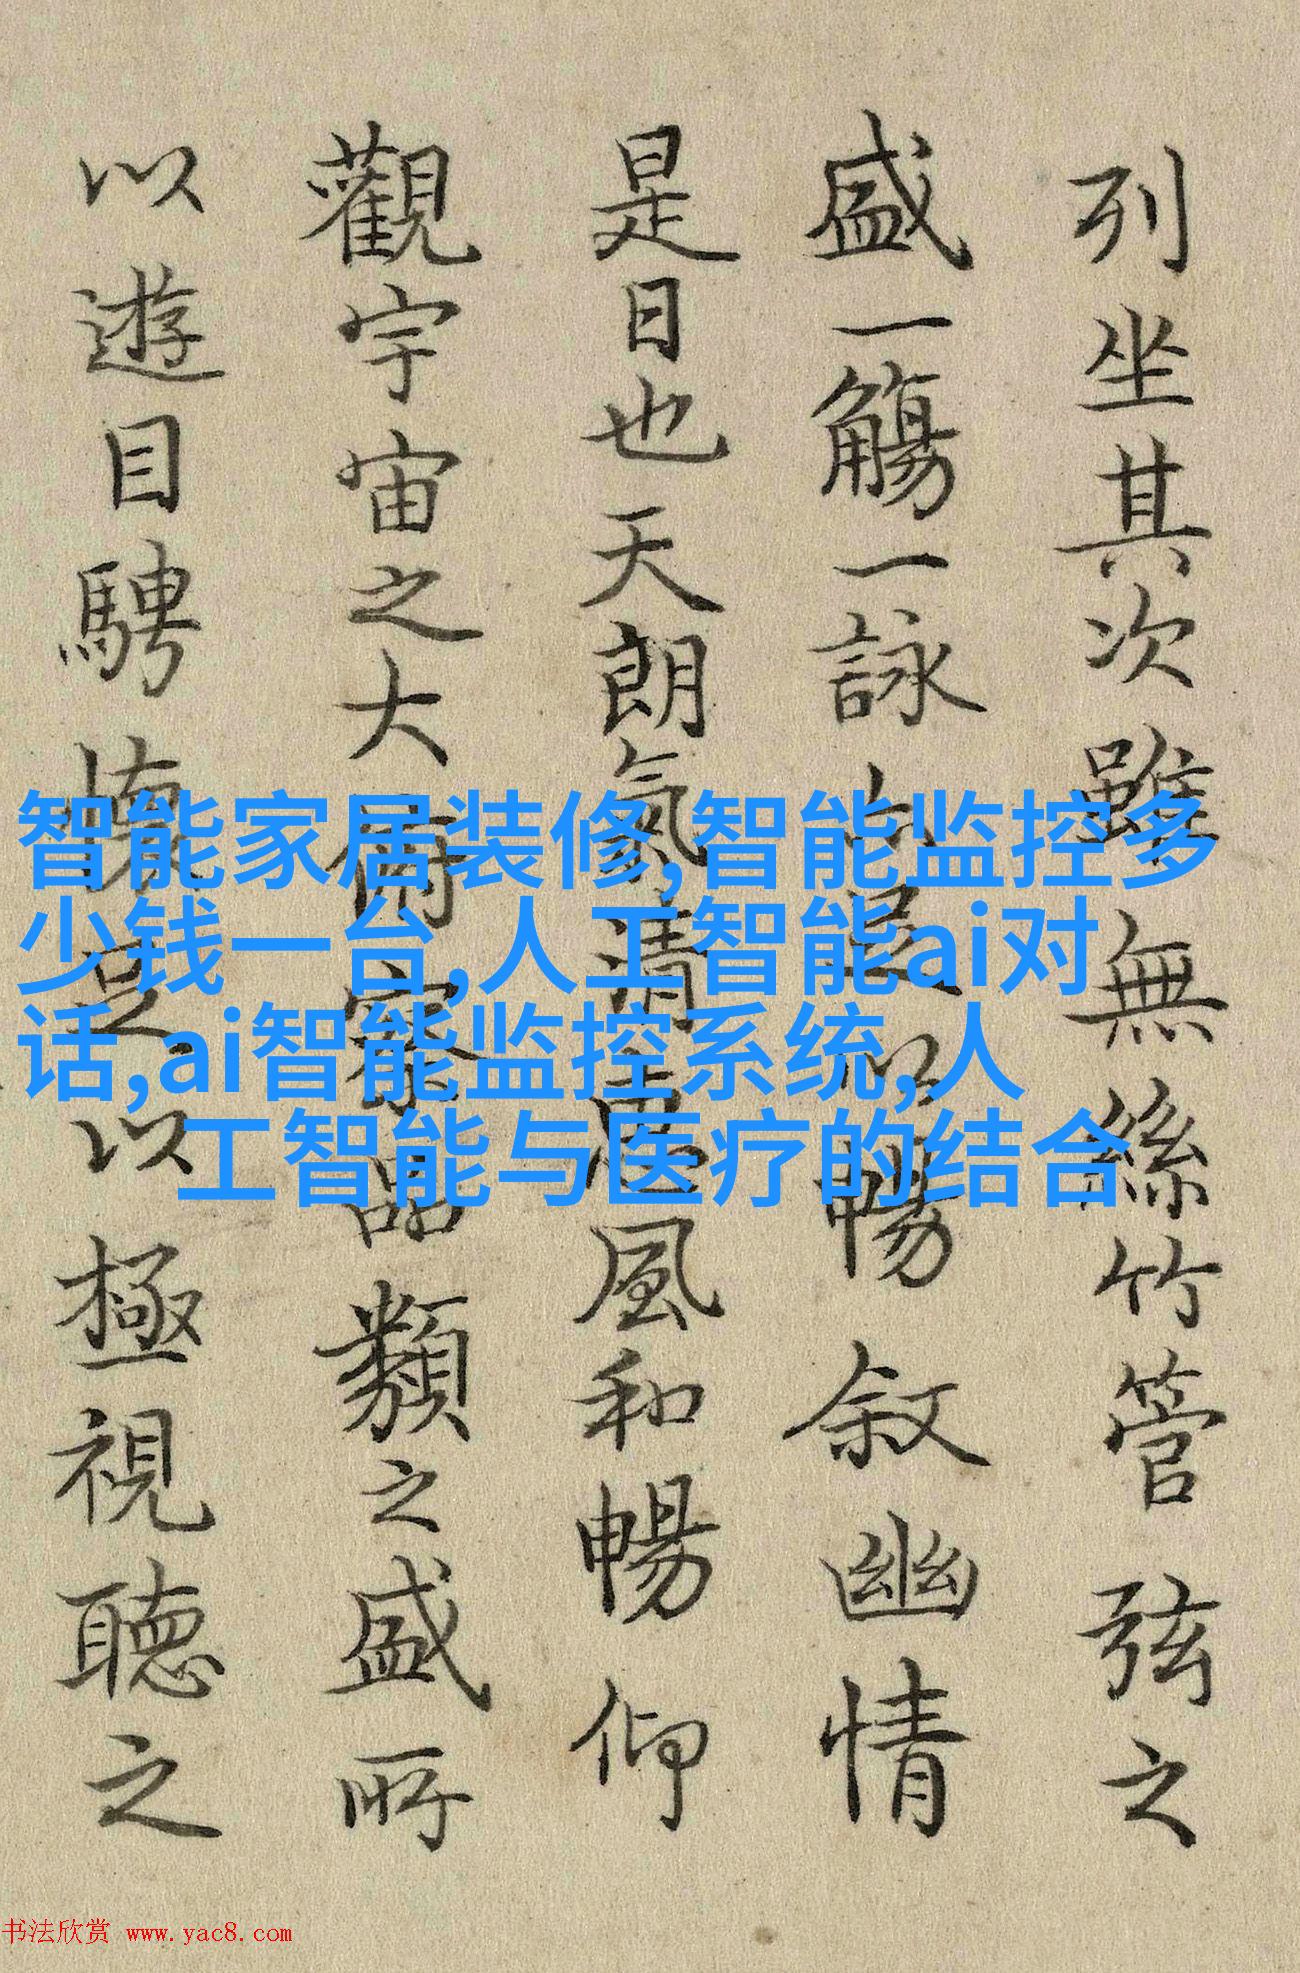 列坐其次雖無絲竹管弦之
盛一觴一詠亦足以暢叙幽情
是日也天朗氣清惠風和暢仰
觀宇宙之大俯察品類之盛所
以遊目騁懷足以極視聽之
智能家居装修,智能监控多
少钱一台,人工智能ai对
话,ai智能监控系统,人
工智能与医疗的结合
书法欣赏 www.yac8.com